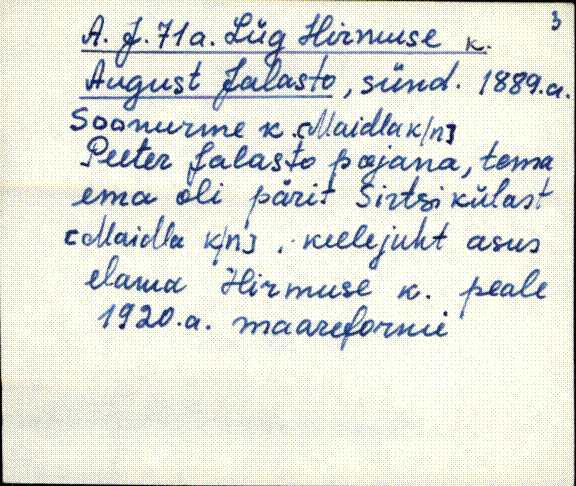 3
A. J. 71a. Lüg Hirmuse k.
August Jalasto, sünd. 1889.a.
Soonurme k. [Maidla k/n]
Peeter Jalasto pojana, tema
ema oli pärit Sirtsi külast
[Maidla k/n], keelejuht asus
elama Hirmuse k. peale
1920.a. maareformi